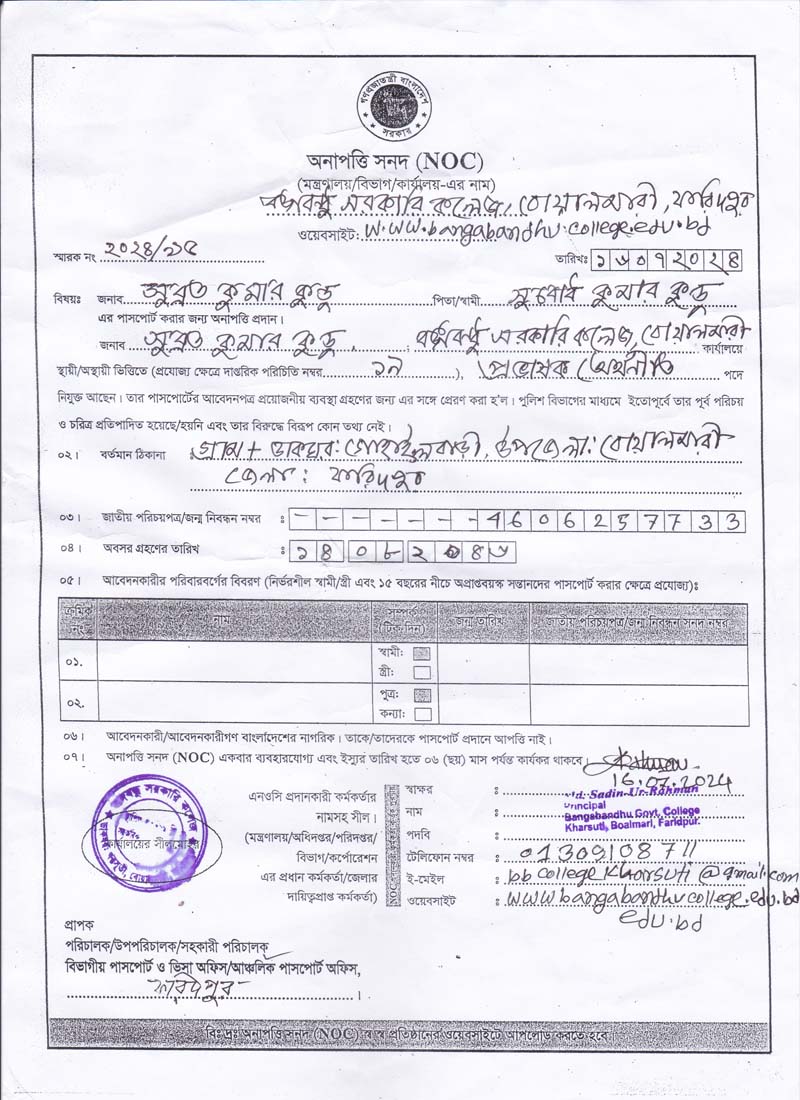 গণপ্রজাতন্ত্রী বাংলাদেশ
সরকার
অনাপত্তি সনদ (NOC)
(মন্ত্রণালয়/বিভাগ/কার্যালয়-এর নাম)
বঙ্গবন্ধু সরকারি কলেজ, বোয়ালমারী, ফরিদপুর
ওয়েবসাইট: www.bangabandhucollege.edu.bd
স্মারক নং ২০২৪/১৫ তারিখঃ ১৬০৭২০২৪
বিষয়ঃ জনাব সুব্রত কুমার কুন্ডু পিতা/স্বামী সুবোধ কুমার কুন্ডু
এর পাসপোর্ট করার জন্য অনাপত্তি প্রদান।
জনাব সুব্রত কুমার কুন্ডু, বঙ্গবন্ধু সরকারি কলেজ, বোয়ালমারী কার্যালয়ে
স্থায়ী/অস্থায়ী ভিত্তিতে (প্রযোজ্য ক্ষেত্রে দাপ্তরিক পরিচিতি নম্বর ), প্রভাষক অর্থনীতি পদে
নিযুক্ত আছেন। তার পাসপোর্টের আবেদনপত্র প্রয়োজনীয় ব্যবস্থা গ্রহণের জন্য এর সঙ্গে প্রেরণ করা হ'ল। পুলিশ বিভাগের মাধ্যমে ইতোপূর্বে তার পূর্ব পরিচয়
ও চরিত্র প্রতিপাদিত হয়েছে/হয়নি এবং তার বিরুদ্ধে বিরূপ কোন তথ্য নেই।
০২। বর্তমান ঠিকানা গ্রাম + ডাকঘর: গোহাইলবাড়ী, উপজেলা: বোয়ালমারী
জেলা: ফরিদপুর
০৩। জাতীয় পরিচয়পত্র/জন্ম নিবন্ধন নম্বর ঃ - - - - - - - 4606257733
০৪। অবসর গ্রহণের তারিখ ঃ
০৫। আবেদনকারীর পরিবারবর্গের বিবরণ (নির্ভরশীল স্বামী/স্ত্রী এবং ১৫ বছরের নীচে অপ্রাপ্তবয়স্ক সন্তানদের পাসপোর্ট করার ক্ষেত্রে প্রযোজ্য)ঃ
ক্রমিক নং নাম সম্পর্ক (টিক দিন) জন্ম তারিখ জাতীয় পরিচয়পত্র/জন্ম নিবন্ধন সনদ নম্বর
০১. স্বামী:
স্ত্রী:
০২. পুত্র:
কন্যা:
০৬। আবেদনকারী/আবেদনকারীগণ বাংলাদেশের নাগরিক। তাকে/তাদেরকে পাসপোর্ট প্রদানে আপত্তি নাই।
০৭। অনাপত্তি সনদ (NOC) একবার ব্যবহারযোগ্য এবং ইস্যুর তারিখ হতে ০৬ (ছয়) মাস পর্যন্ত কার্যকর থাকবে।
16.07.2024
এনওসি প্রদানকারী কর্মকর্তার
নামসহ সীল।
(মন্ত্রণালয়/অধিদপ্তর/পরিদপ্তর/
বিভাগ/কর্পোরেশন
এর প্রধান কর্মকর্তা/জেলার
দায়িত্বপ্রাপ্ত কর্মকর্তা)
কার্যালয়ের সীলমোহর
স্বাক্ষর :
Md. Sadin-Ur-Rahman
Principal
নাম :
Bangabandhu Govt. College
Kharsuti, Boalmari, Faridpur.
পদবি :
টেলিফোন নম্বর : 01309108711
ই-মেইল : bbcollegekharsuti@gmail.com
ওয়েবসাইট : www.bangabandhucollege.edu.bd
edu.bd
প্রাপক
পরিচালক/উপপরিচালক/সহকারী পরিচালক
বিভাগীয় পাসপোর্ট ও ভিসা অফিস/আঞ্চলিক পাসপোর্ট অফিস,
ফরিদপুর।
বিঃ দ্রঃ অনাপত্তি সনদ (NOC) স্ব স্ব প্রতিষ্ঠানের ওয়েবসাইটে আপলোড করতে হবে।